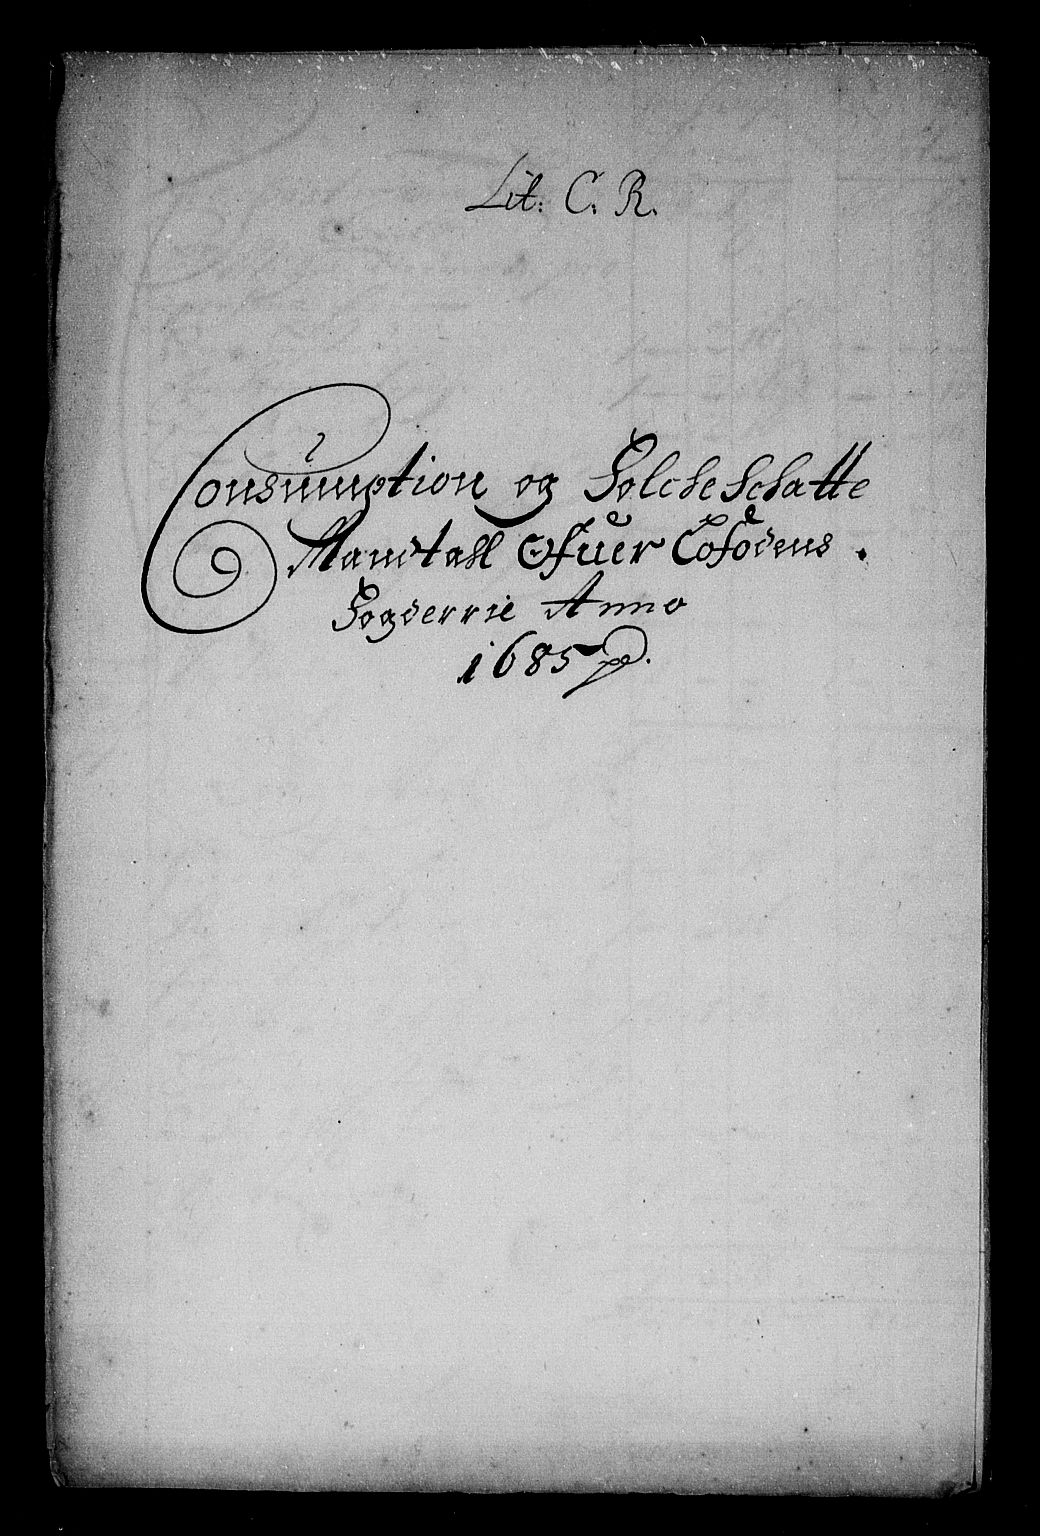 Lit: C. R.
Consumption og Folche Schatte
Mandtall Ofuer Lofodens
Fogderrie Anno
1685